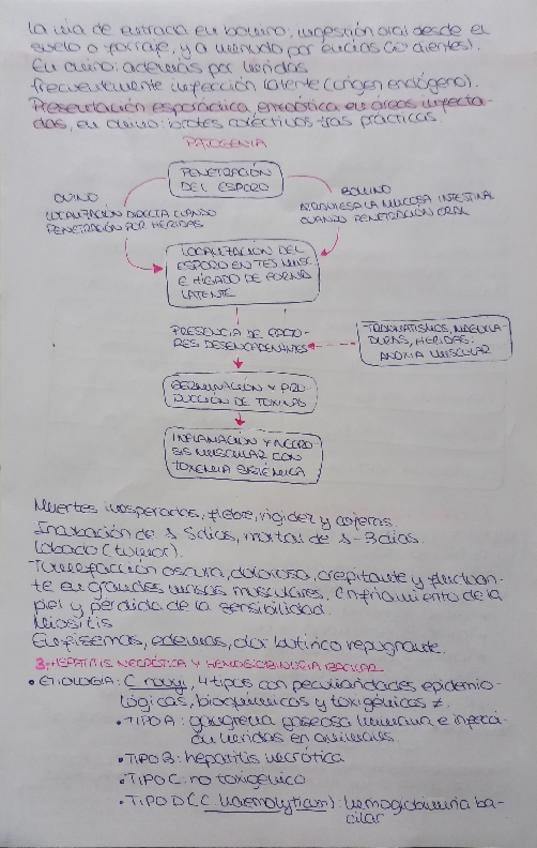 La vía de entrada en bovino, ingestión oral desde el
suelo o forraje, y a menudo por encías (↻ dientes).
En ovino: además por heridas
Frecuentemente infección latente (origen endógeno).
Presentación esporádica, enzoótica en áreas infecta-
das, en ovino: brotes colectivos tras prácticas.
PATOGENIA
PENETRACIÓN
DEL ESPORO
OVINO
LOCALIZACIÓN DIRECTA CUANDO
PENETRACIÓN POR HERIDAS
BOVINO
ATRAVIESA LA MUCOSA INTESTINAL
CUANDO PENETRACIÓN ORAL
LOCALIZACIÓN DEL
ESPORO EN TEJ MUSC
E HÍGADO DE FORMA
LATENTE
PRESENCIA DE FACTO-
RES DESENCADENANTES
TRAUMATISMOS, MAGULLA-
DURAS, HERIDAS:
ANOXIA MUSCULAR
GERMINACIÓN Y PRO
DUCCIÓN DE TOXINAS
INFLAMACIÓN Y NECRO
SIS MUSCULAR CON
TOXEMIA SISTÉMICA
Muertes inesperadas, fiebre, rigidez y cojeras.
Incubación de 1-5 días, mortal de 1-3 días.
Lobado (tumor).
Tumefacción oscura, dolorosa, crepitante y fluctuan-
te en grandes masas musculares. Enfriamiento de la
piel y pérdida de la sensibilidad.
Miositis
Enfisemas, edemas, olor butírico repugnante.
3. HEPATITIS NECRÓTICA Y HEMOGLOBINURIA BACILAR
• ETIOLOGIA: C novyi, 4 tipos con peculiaridades epidemio-
lógicas, bioquímicos y toxigénicos ≠.
• TIPO A: gangrena gaseosa humana e infecci-
ón heridas en animales.
• TIPO B: hepatitis necrótica
• TIPO C: no toxigénico
• TIPO D (C. haemolyticum): hemoglobinuria ba-
cilar